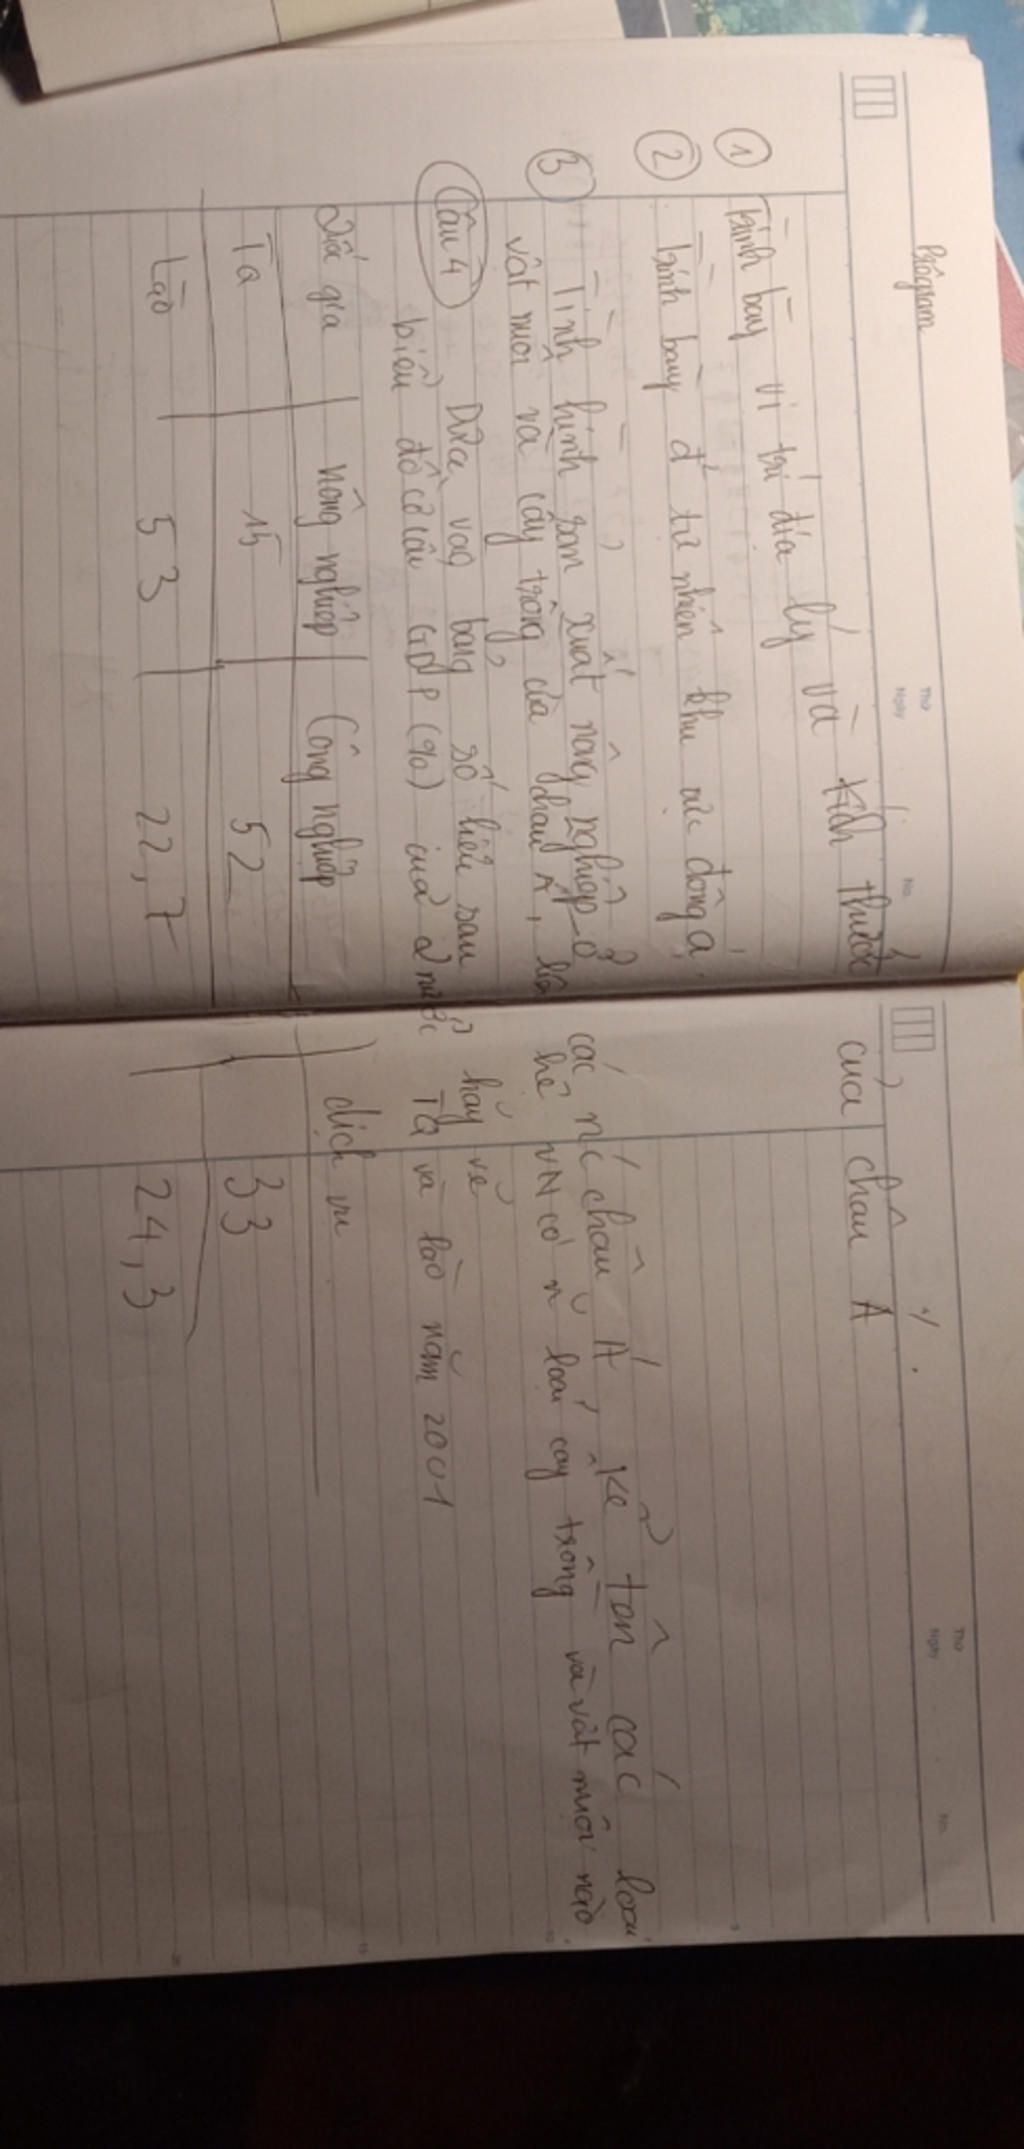 Program
Thứ
Ngày
No.
① Trình bày vị trí địa lý và kích thước của châu Á
② Trình bày đ² tự nhiên khu vực đông á.
③ Tình hình sản xuất nông nghiệp ở các nc châu Á kể tên các loại
vật nuôi và cây trồng của châu Á, liên hệ VN có n~ loại cây trồng và vật nuôi nào
Câu 4 Dựa vào bảng số liệu sau hãy vẽ
biểu đồ cơ cấu GDP (%) của 2 nước TQ và Lào năm 2001
Quốc gia nông nghiệp Công nghiệp dịch vụ
TQ 15 52 33
Lào 53 22,7 24,3
Thứ
Ngày
No.